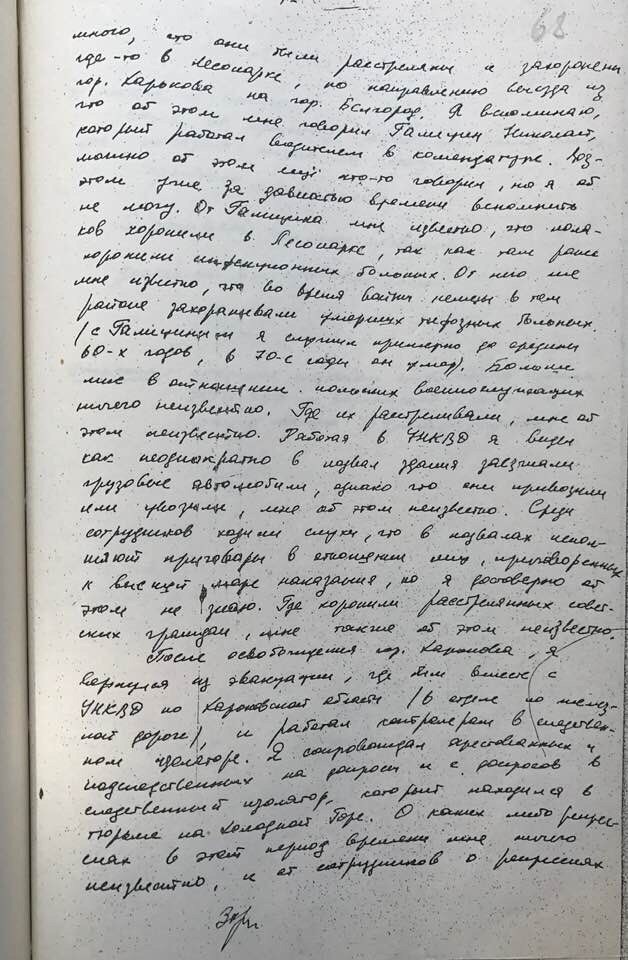 68
много, что они были расстреляны и захоронены
где-то в Лесопарке, по направлению выезда из
гор. Харькова на гор. Белгород. Я вспоминаю,
что об этом мне говорил Галицин Николай,
который работал водителем в комендатуре. Воз-
можно об этом ещё кто-то говорил, но я об
этом уже за давностью времени вспомнить
не могу. От Галицина мне известно, что поля-
ков хоронили в Лесопарке, так как там ранее
хоронили инфекционных больных. От него же
мне известно, что во время войны немцы в том
районе захоранивали умерших тифозных больных.
(с Галициным я служил примерно до средины
60-х годов, в 70-е годы он умер). Больше
мне в отношении польских военнослужащих
ничего неизвестно. Где их расстреливали, мне об
этом неизвестно. Работая в УНКВД я видел
как неоднократно в подвал здания заезжали
грузовые автомобили, однако что они привозили
или увозили, мне об этом неизвестно. Среди
сотрудников ходили слухи, что в подвалах испол-
няют приговоры в отношении лиц, приговоренных
к высшей мере наказания, но я достоверно об
этом не знаю. Где хоронили расстрелянных совет-
ских граждан, мне также об этом неизвестно.
После освобождения гор. Харькова, я
вернулся из эвакуации, где был вместе с
УНКВД по Харьковской области (в отделе по желез-
ной дороге), и работал контролером в следствен-
ном изоляторе. Я сопровождал арестованных и
подследственных на допросы и с допросов в
следственный изолятор, который находился в
тюрьме на Холодной Горе. О каких либо репрес-
сиях в этот период времени мне ничего
неизвестно, и от сотрудников о репрессиях